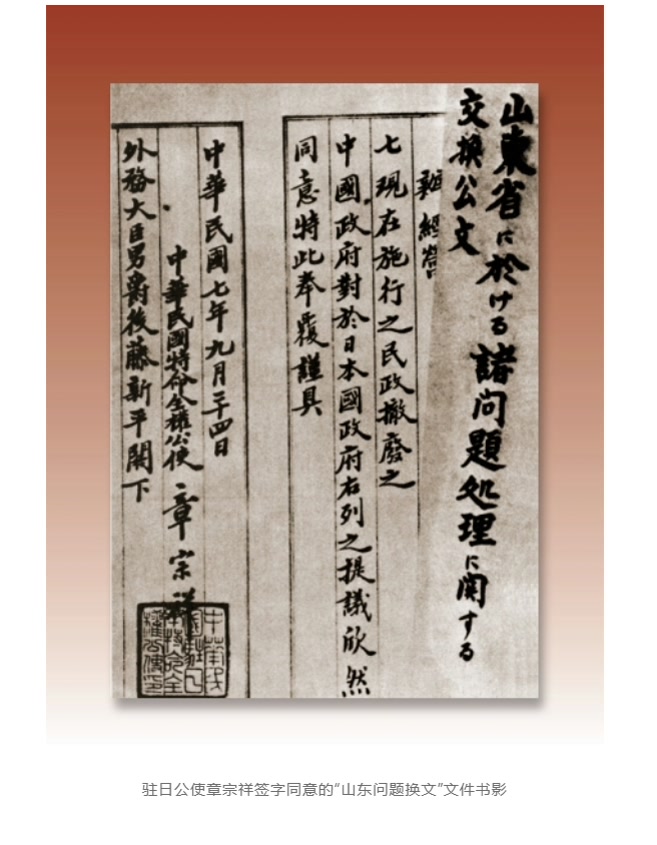 山東省に於ける諸問題処理に関する
交換公文
經營
七現在施行之民政撤廢之
中國政府對於日本國政府右列之提議欣然
同意特此奉覆謹具
中華民國七年九月二十四日
中華民國特命全權公使 章宗祥
外務大臣男爵後藤新平閣下
中華民
國駐日
本特命全
權公使印
驻日公使章宗祥签字同意的“山东问题换文”文件书影